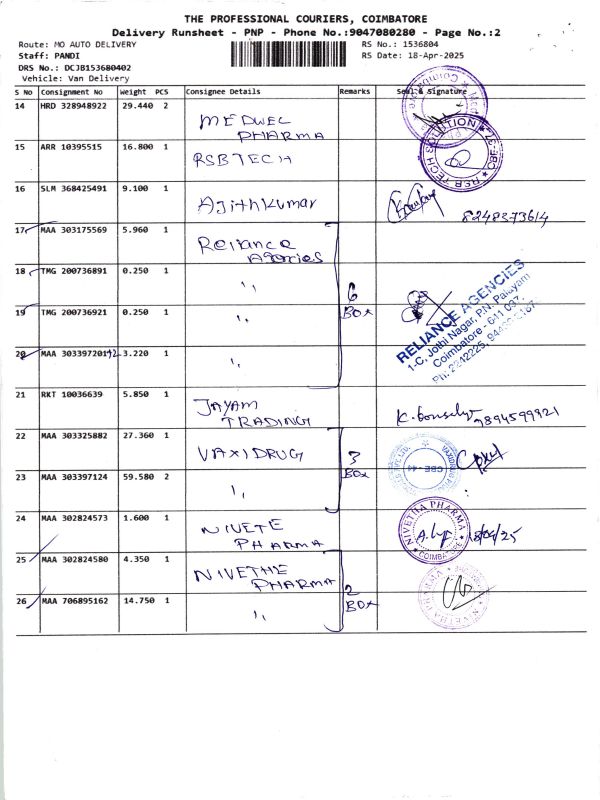 THE PROFESSIONAL COURIERS, COIMBATORE
Delivery Runsheet - PNP - Phone No.:9047080280 - Page No.:2
Route: MO AUTO DELIVERY
RS No.: 1536804
Staff: PANDI
RS Date: 18-Apr-2025
DRS No.: DCJB153680402
Vehicle: Van Delivery
S No Consignment No Weight PCS Consignee Details Remarks Seal & Signature
14 HRD 328948922 29.440 2 MEDWEL PHARMA
15 ARR 10395515 16.800 1 RSBTECH
RSB TECH SOLUTION CBE-37
16 SLM 368425491 9.100 1 AJithKumar 8248373614
17 MAA 303175569 5.960 1 Reliance Agencies
18 TMG 200736891 0.250 1 "
6 BOX
19 TMG 200736921 0.250 1 "
RELIANCE AGENCIES
1-C, Jothi Nagar, P.N. Palayam
Coimbatore - 641 037.
20 MAA 303397201 3.220 1 "
21 RKT 10036639 5.850 1 JAYAM TRADING 9894599921
22 MAA 303325882 27.360 1 VAXIDRUG
3 BOX
CBE - 44
23 MAA 303397124 59.580 2 "
24 MAA 302824573 1.600 1 NIVETE PHARMA
NIVETHA PHARMA COIMBATORE
18/04/25
25 MAA 302824580 4.350 1 NIVETHE PHARMA
2 BOX
NIVETHA PHARMA
26 MAA 706895162 14.750 1 "